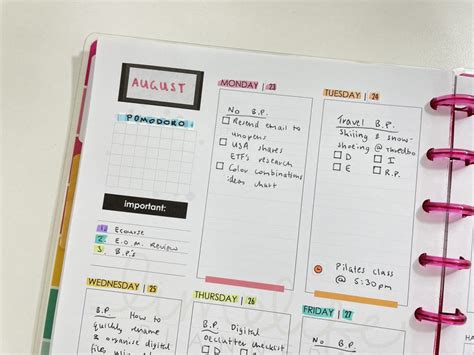 AUGUST
POMODORO
important:
1. Ecourse
2. E.O.M. Review
3. B.P's
MONDAY | 23
No B.P.
Resend email to
unopens
USA shares
ETF's research
Color combinations
ideas chart
TUESDAY | 24
Travel B.P.
Skiing & snow-
shoeing @ Thredbo
D I
E R.P.
Pilates class
@ 5:30pm
WEDNESDAY | 25
B.P. How to
quickly rename
& organise digital
files using
THURSDAY | 26
B.P.
Digital
declutter checklist
FRIDAY | 27
No B.P.